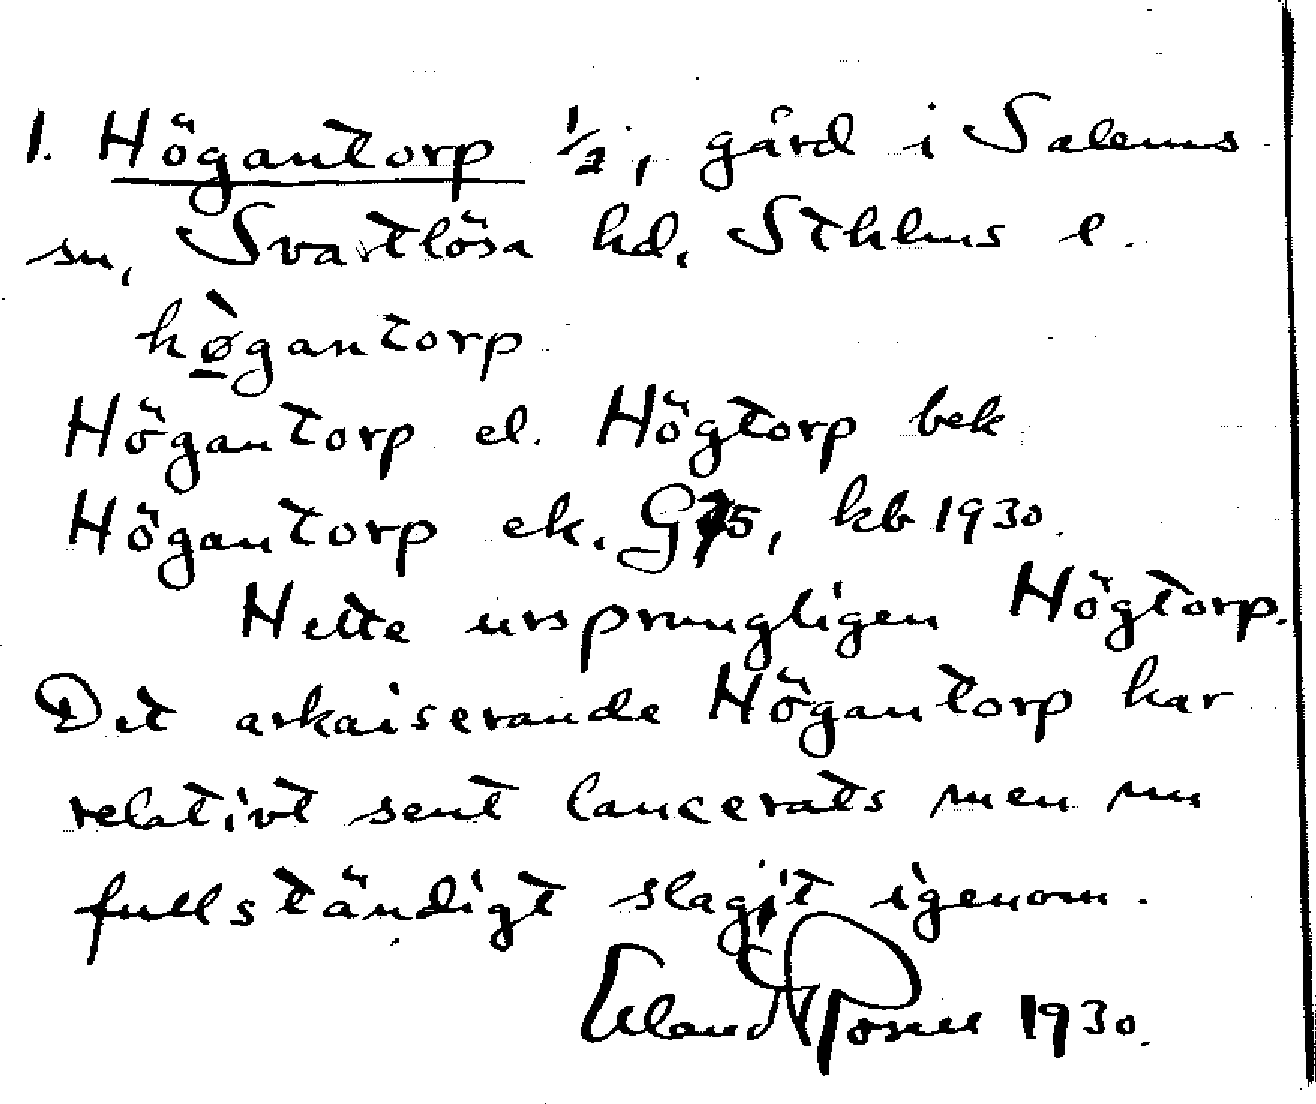 1. Högantorp 1/2, gård i Salems
sn, Svartlösa hd, Sthlms l.
hø̀gantorp
Högantorp el. Högtorp bek
Högantorp ek. G 75, kb 1930.
Hette ursprungligen Högtorp.
Det arkaiserande Högantorp har
relativt sent lancerats men nu
fullständigt slagit igenom.
Erland Rosell 1930.